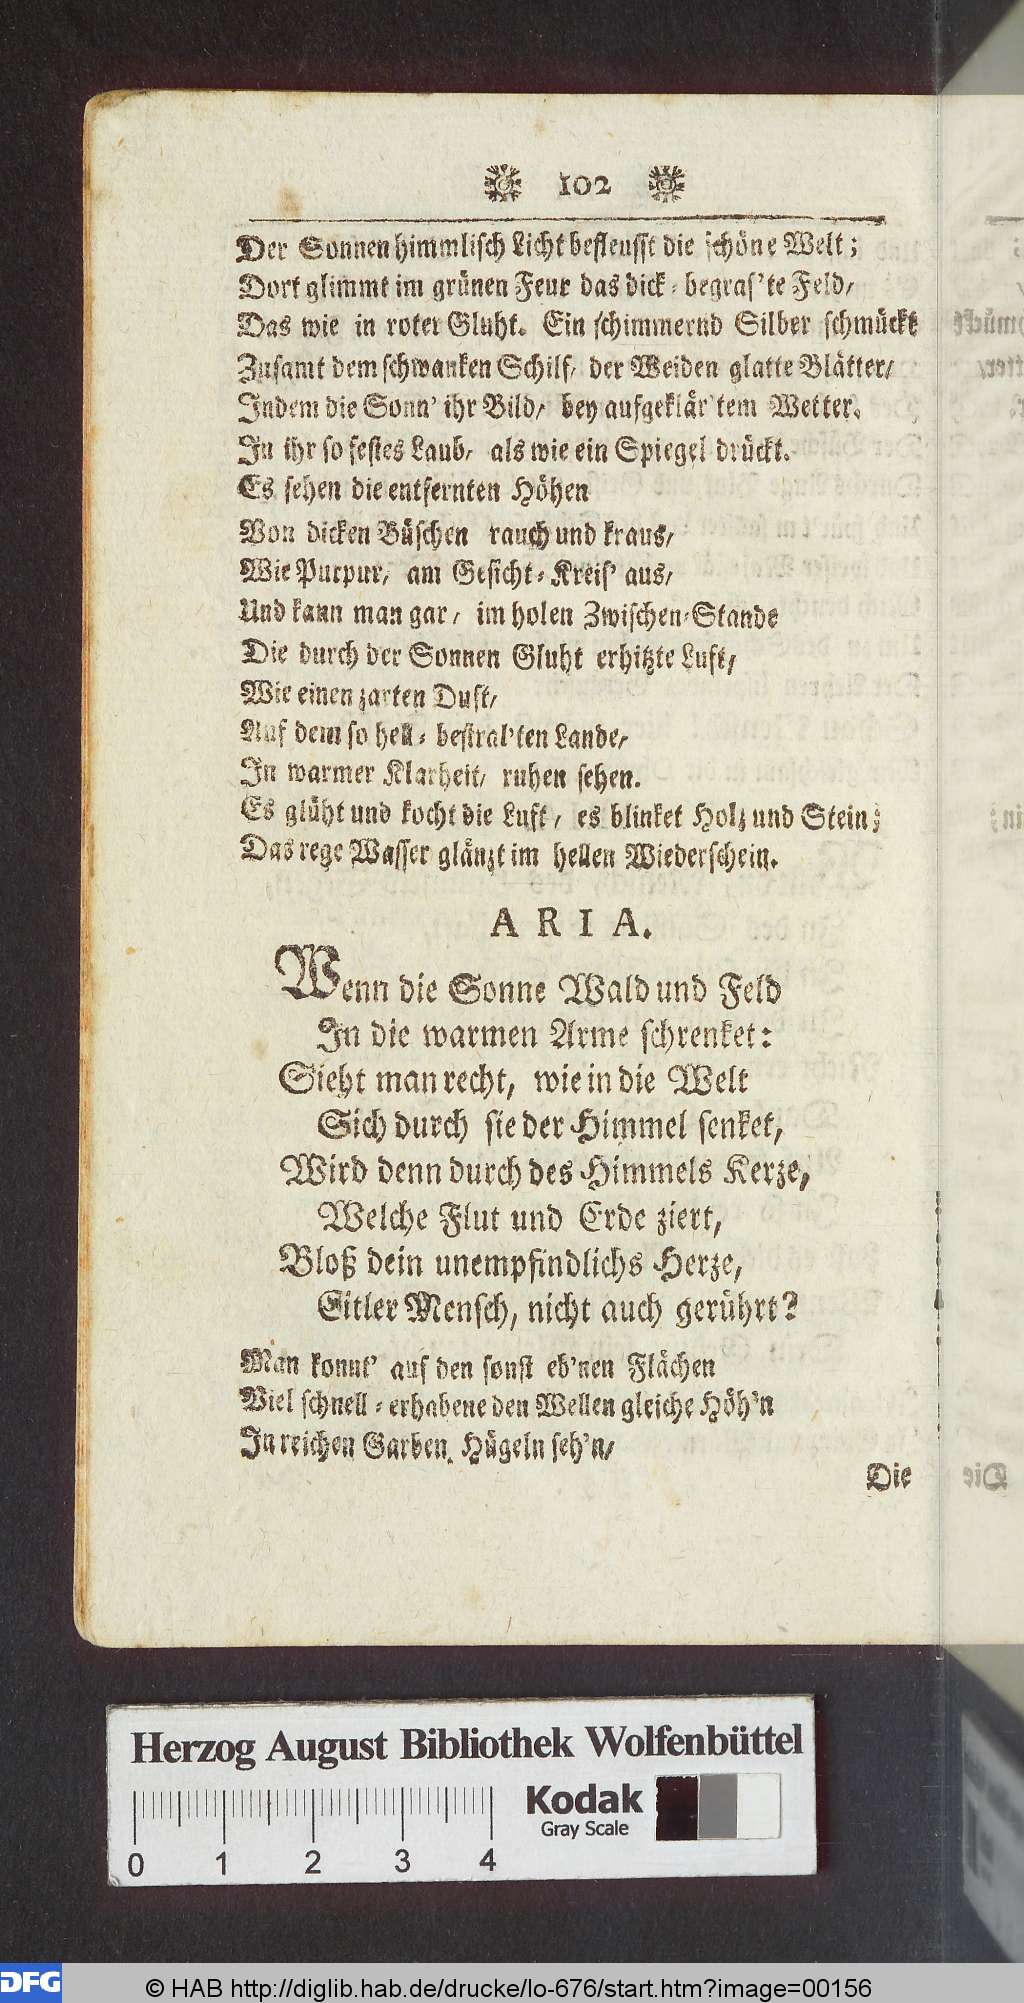 102
Der Sonnen himmlisch Licht befleusst die schöne Welt;
Dort glimmt im grünen Feur das dick-begras'te Feld/
Das wie in roter Gluht. Ein schimmernd Silber schmückt
Zusamt dem schwanken Schilf/ der Weiden glatte Blätter/
Indem die Sonn' ihr Bild/ bey aufgeklär'tem Wetter.
In ihr so festes Laub/ als wie ein Spiegel drückt.
Es sehen die entfernten Höhen
Von dicken Büschen rauch und kraus/
Wie Purpur/ am Gesicht-Kreis' aus/
Und kann man gar/ im holen Zwischen-Stande
Die durch der Sonnen Gluht erhitzte Luft/
Wie einen zarten Duft/
Auf dem so hell-bestral'ten Lande/
In warmer Klarheit/ ruhen sehen.
Es glüht und kocht die Luft/ es blinket Holz und Stein;
Das rege Wasser glänzt im hellen Wiederschein.
ARIA.
Wenn die Sonne Wald und Feld
In die warmen Arme schrenket:
Sieht man recht, wie in die Welt
Sich durch sie der Himmel senket,
Wird denn durch des Himmels Kerze,
Welche Flut und Erde ziert,
Bloß dein unempfindlichs Herze,
Eitler Mensch, nicht auch gerührt?
Man konnt' auf den sonst eb'nen Flächen
Viel schnell-erhabene den Wellen gleiche Höh'n
In reichen Garben-Hügeln seh'n/
Die
Herzog August Bibliothek Wolfenbüttel
Kodak
Gray Scale
0 1 2 3 4
DFG
© HAB http://diglib.hab.de/drucke/lo-676/start.htm?image=00156